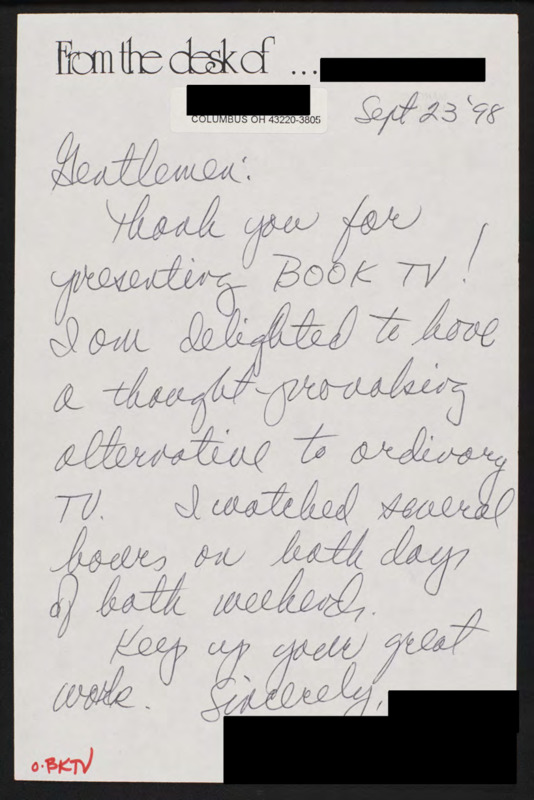 From the desk of ...
COLUMBUS OH 43220-3805
Sept 23 '98
Gentlemen:
Thank you for
presenting BOOK TV!
I am delighted to have
a thought-provoking
alternative to ordinary
TV. I watched several
hours on both days
of both weekends.
Keep up your great
work. Sincerely,
O.BKTV